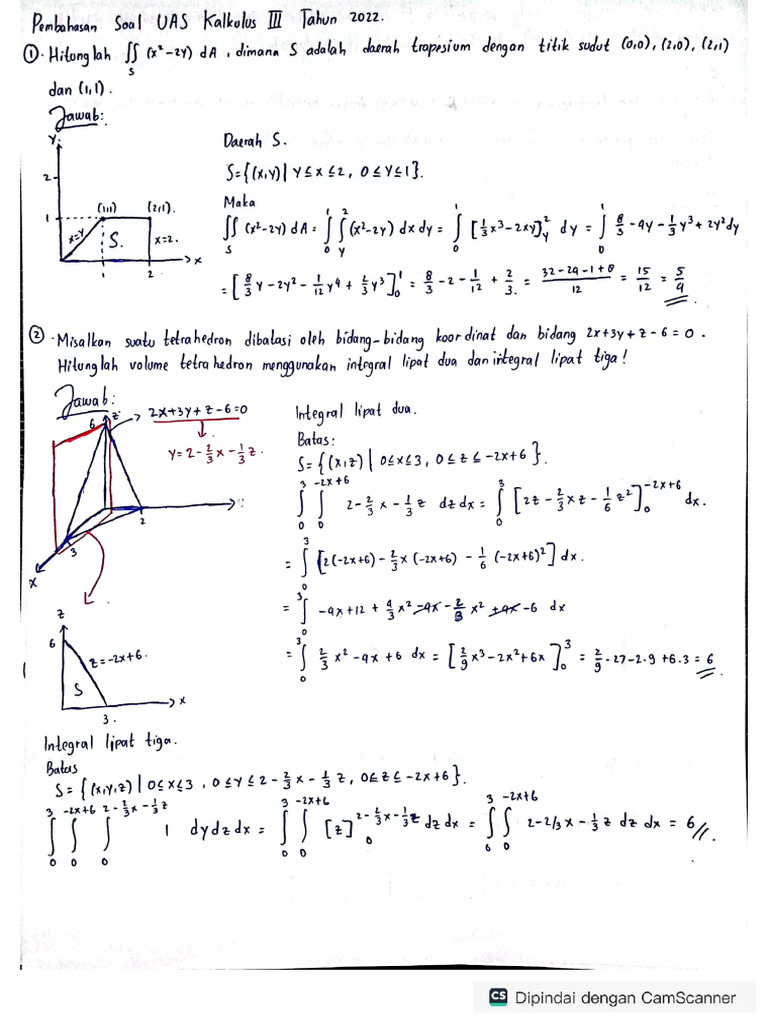 Pembahasan Soal UAS Kalkulus III Tahun 2022.
① · Hitunglah ∬_S (x² - 2y) dA , dimana S adalah daerah trapesium dengan titik sudut (0,0), (2,0), (2,1)
dan (1,1).
Jawab:
Y
2
1
(1,1)
(2,1).
x=y
S.
x=2.
x
1
2
Daerah S.
S={(x,y)| y≤x≤2, 0≤y≤1}.
Maka
∬_S (x²-2y) dA = ∫_0^1 ∫_y^2 (x²-2y) dx dy = ∫_0^1 [⅓x³-2xy]_y^2 dy = ∫_0^1 8/3 - 4y - ⅓y³ + 2y² dy
= [8/3 y - 2y² - 1/12 y⁴ + 2/3 y³]_0^1 = 8/3 - 2 - 1/12 + 2/3. = (32-24-1+8)/12 = 15/12 = 5/4
② · Misalkan suatu tetrahedron dibatasi oleh bidang-bidang koordinat dan bidang 2x+3y+z-6=0.
Hitunglah volume tetrahedron menggunakan integral lipat dua dan integral lipat tiga!
Jawab:
6
z
2x+3y+z-6=0
y=2-2/3x-1/3z.
2
3
x
Integral lipat dua.
Batas:
S={(x,z)| 0≤x≤3, 0≤z≤-2x+6}.
∫_0^3 ∫_0^{-2x+6} 2-2/3x-1/3z dz dx = ∫_0^3 [2z-2/3xz-1/6z²]_0^{-2x+6} dx.
= ∫_0^3 [2(-2x+6)-2/3x(-2x+6)-1/6(-2x+6)²] dx.
= ∫_0^3 -4x+12+4/3x²-4x-2/3x²+4x-6 dx
= ∫_0^3 2/3x²-4x+6 dx = [2/9x³-2x²+6x]_0^3 = 2/9·27-2·9+6·3=6
z
6
z=-2x+6.
S
x
3.
Integral lipat tiga.
Batas
S={(x,y,z)| 0≤x≤3, 0≤y≤2-2/3x-1/3z, 0≤z≤-2x+6}.
∫_0^3 ∫_0^{-2x+6} ∫_0^{2-2/3x-1/3z} 1 dy dz dx = ∫_0^3 ∫_0^{-2x+6} [z]_0^{2-2/3x-1/3z} dz dx = ∫_0^3 ∫_0^{-2x+6} 2-2/3x-1/3z dz dx = 6//.
CS Dipindai dengan CamScanner